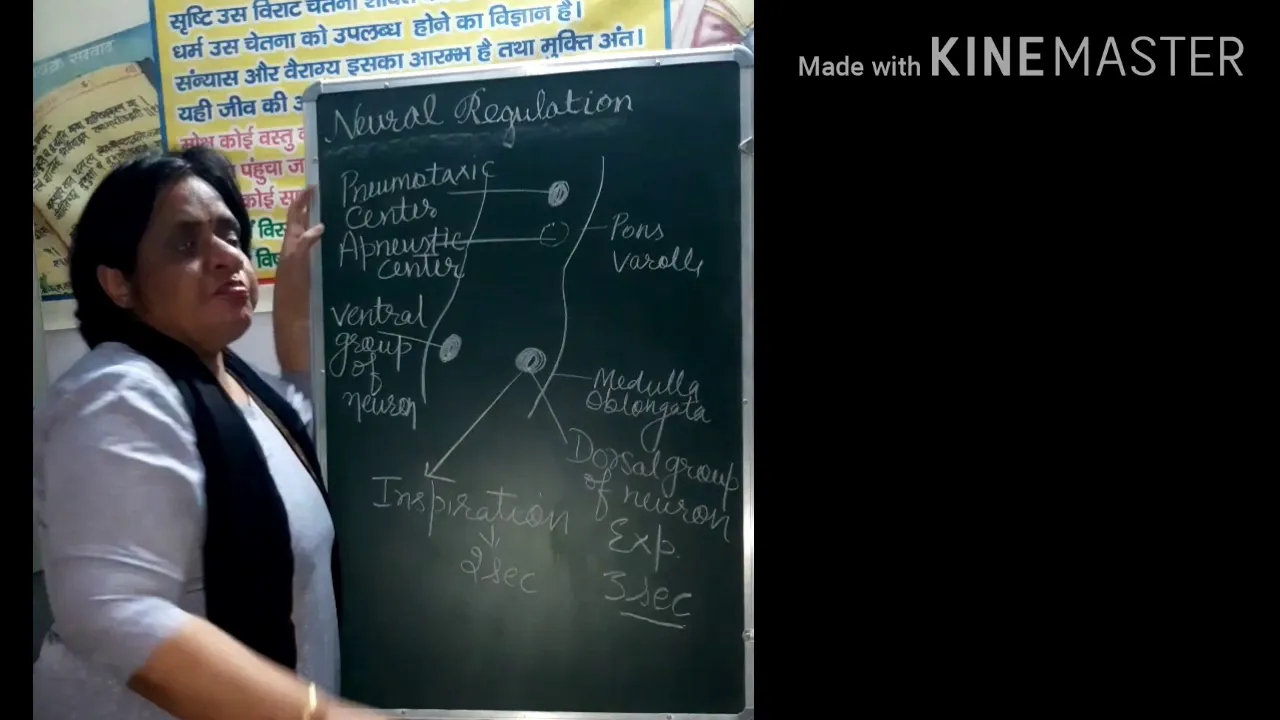 सृष्टि उस विराट चेतना शक्ति
धर्म उस चेतना को उपलब्ध होने का विज्ञान है।
संन्यास और वैराग्य इसका आरम्भ है तथा मुक्ति अंत।
यही जीव की
मोक्ष कोई वस्तु
पंहुचा
कोई
Made with KINEMASTER
Neural Regulation
Pneumotaxic
center
Apneustic
center
Pons
varolli
ventral
group
of
neuron
Medulla
Oblongata
Dorsal group
of neuron
Inspiration
2 sec
Exp.
3 sec